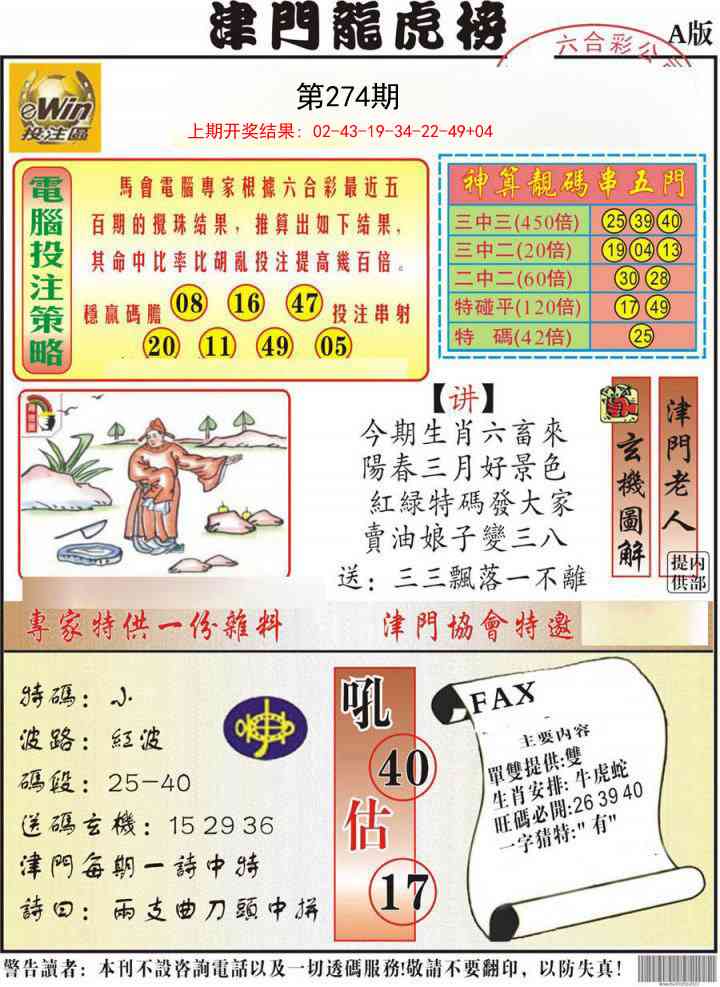 津門龍虎榜
A版
六合彩公
eWin
投注區
第274期
上期开奖结果：02-43-19-34-22-49+04
電腦投注策略
馬會電腦專家根據六合彩最近五
百期的攪珠结果，推算出如下结果，
其命中比率比胡亂投注提高幾百倍。
穩赢碼膽 08 16 47 投注串射
20 11 49 05
神算靚碼串五門
三中三(450倍) 25 39 40
三中二(20倍) 19 04 13
二中二(60倍) 30 28
特碰平(120倍) 17 49
特 碼(42倍) 25
【讲】
今期生肖六畜來
陽春三月好景色
紅緑特碼發大家
賣油娘子變三八
送：三三飄落一不離
玄機圖解
津門老人
内部提供
專家特供一份雜料
津門協會特邀
特碼：小
波路：紅波
碼段：25-40
送碼玄機：15 29 36
津門每期一詩中特
詩曰：兩支曲刀頭中拼
吼
40
估
17
FAX
主要内容
單雙提供:雙
生肖安排:牛虎蛇
旺碼必開:26 39 40
一字猜特:"有"
警告讀者：本刊不設咨詢電話以及一切透碼服務!敬請不要翻印，以防失真！